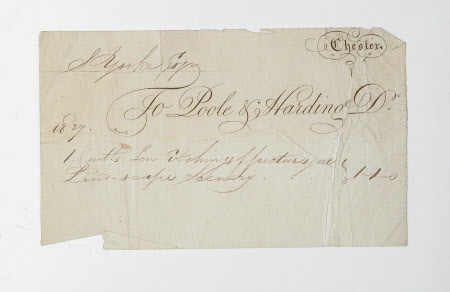 Chester.
S Yorke Esqr
To Poole & Harding Dr.
1827.
1 Cuitt's Ten Etchings of picturesque
Landscape Scenery
1-1-0